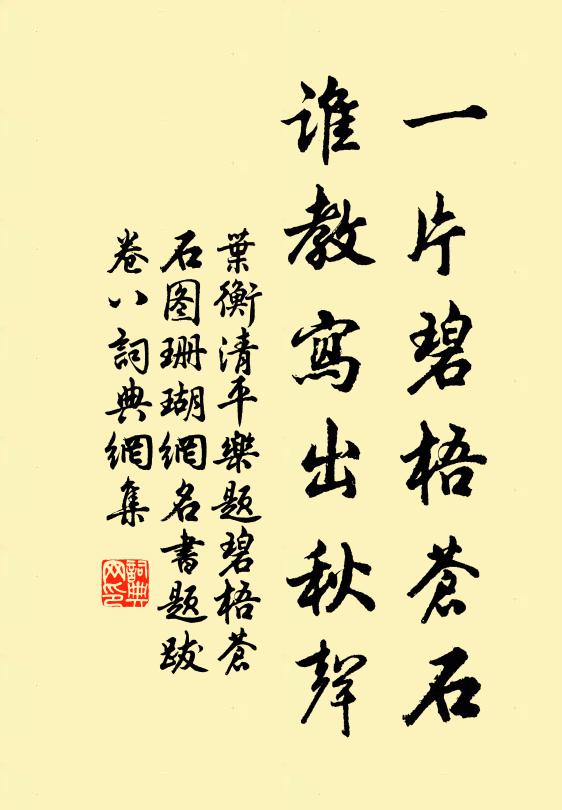 一片碧梧蒼石
谁教寫出秋聲
葉衡清平樂題碧梧蒼
石图珊瑚網名書題跋
卷八詞典網集
詞典网印